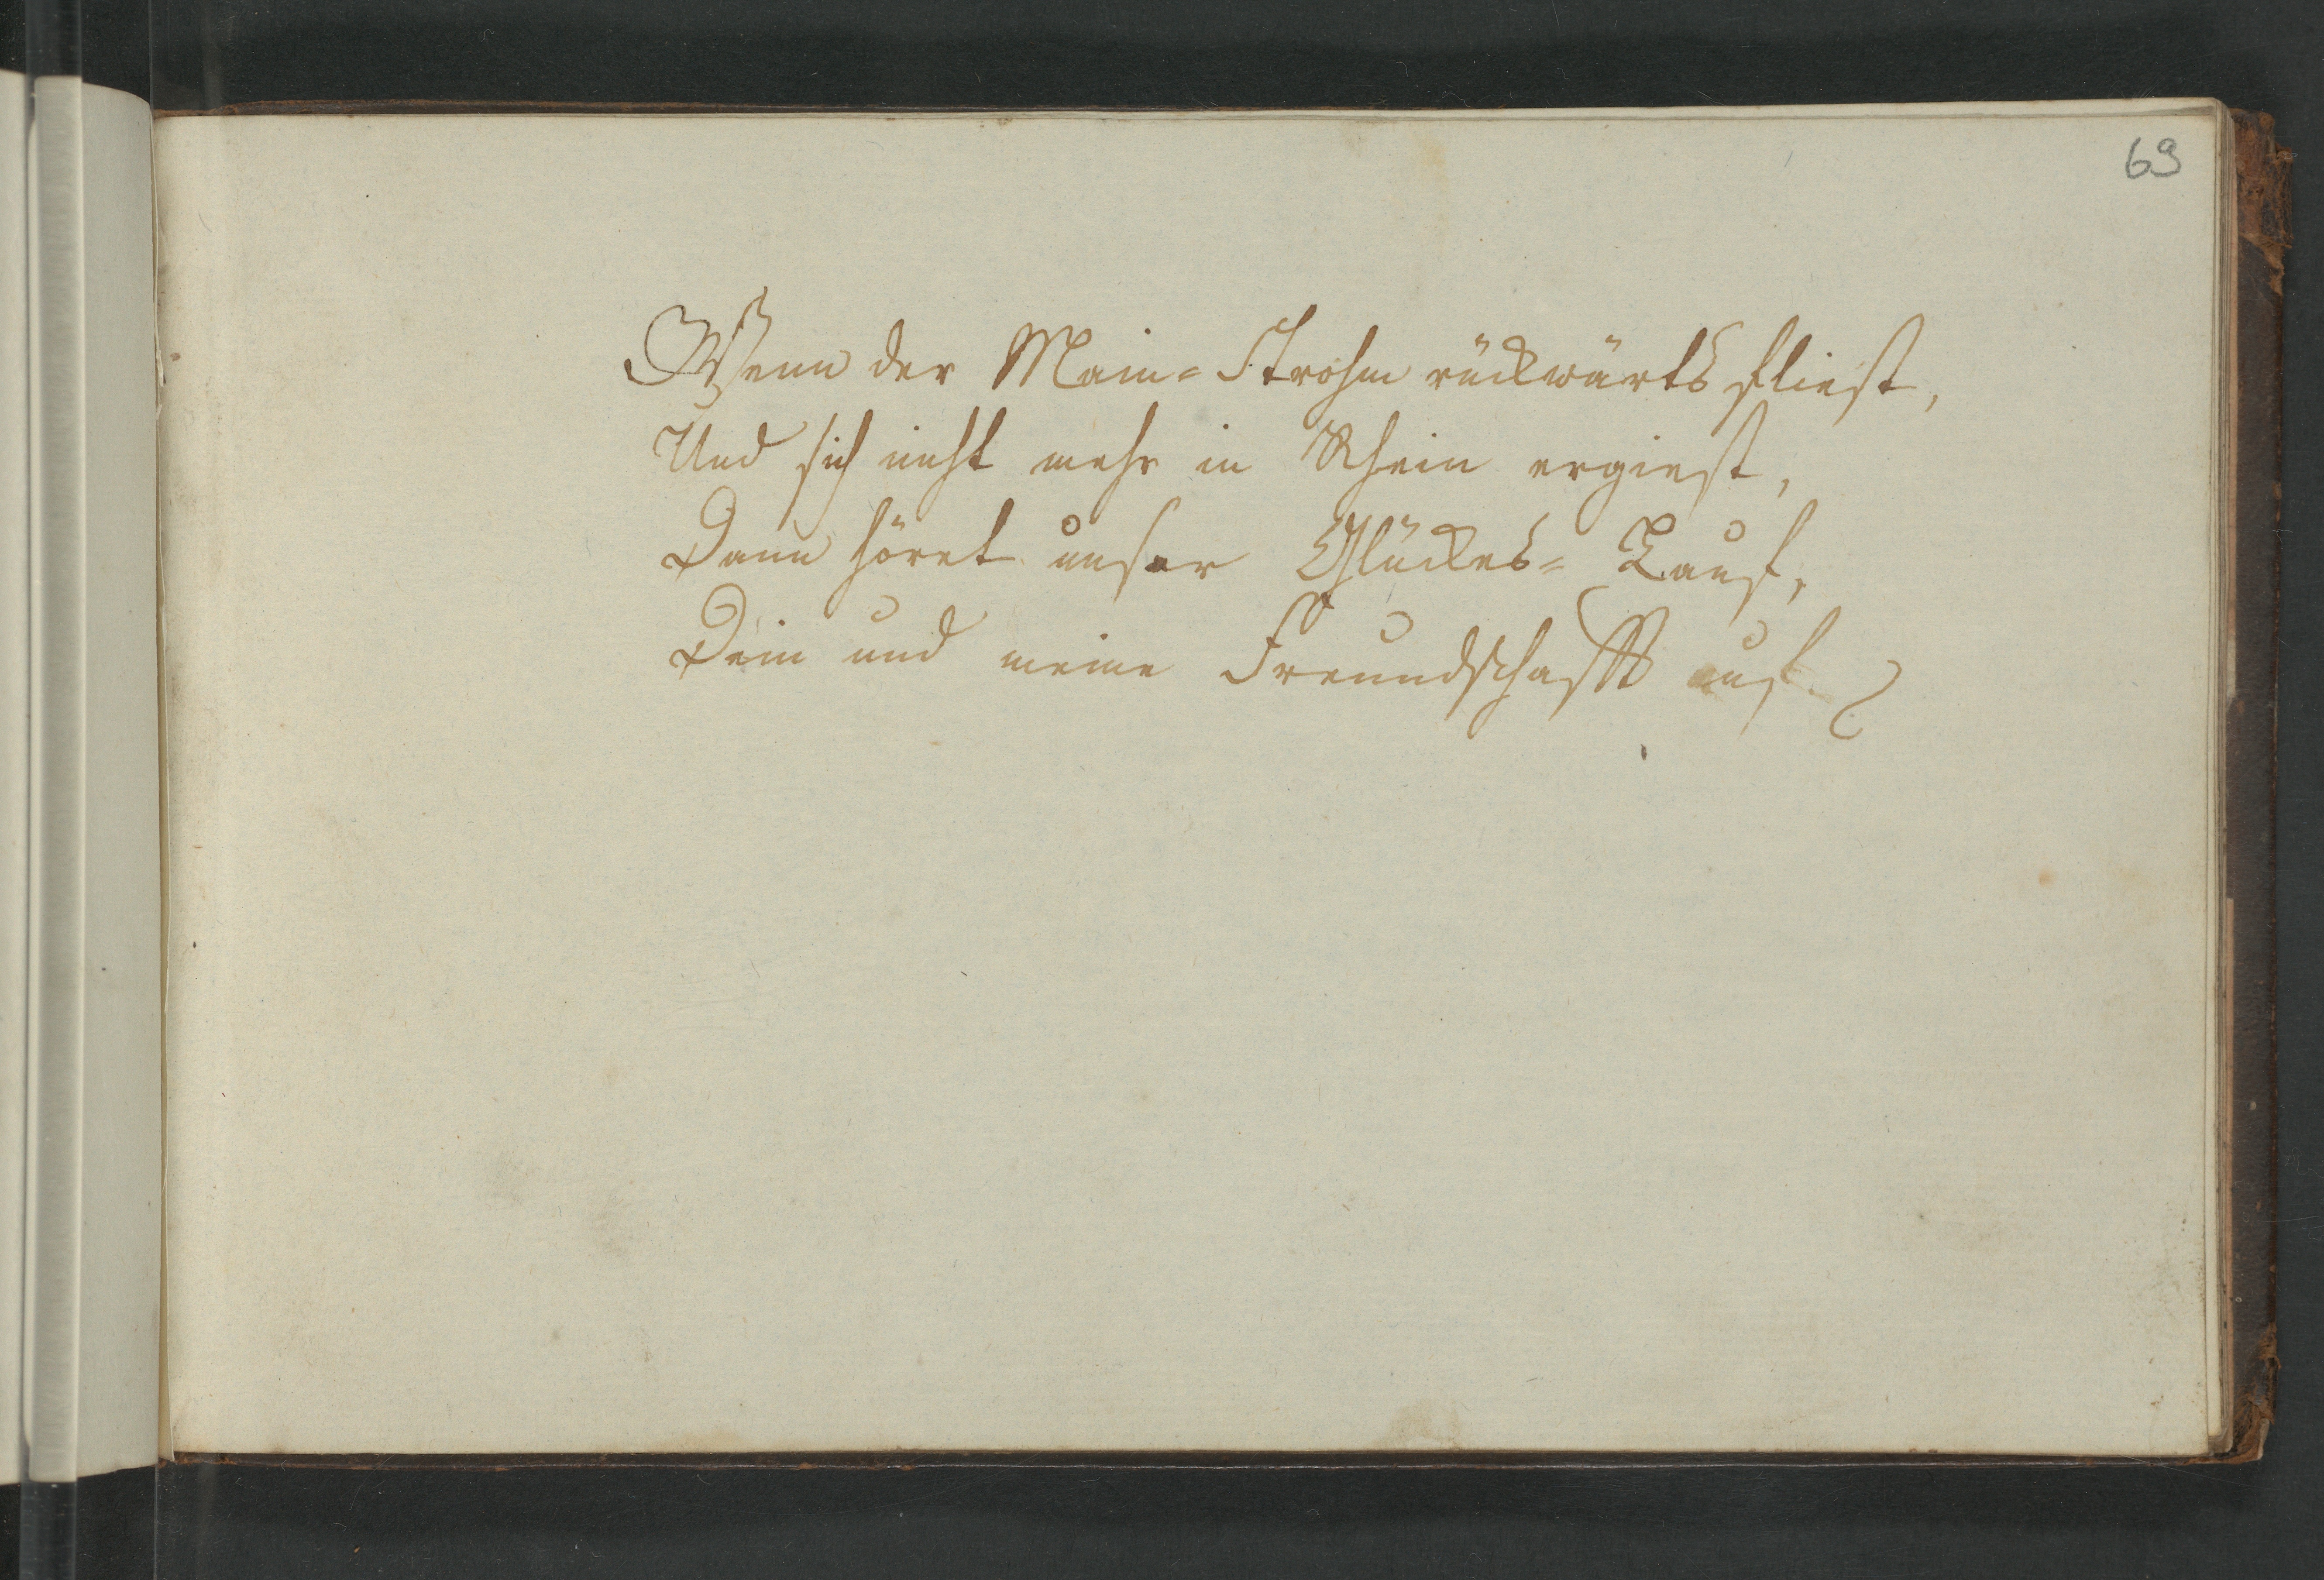 69
Wenn der Main-Strohm rückwärts fliest,
Und sich nicht mehr in Rhein ergiest,
Dann höret unser Glückes-Lauf,
Dein und meine Freundschafft auf.